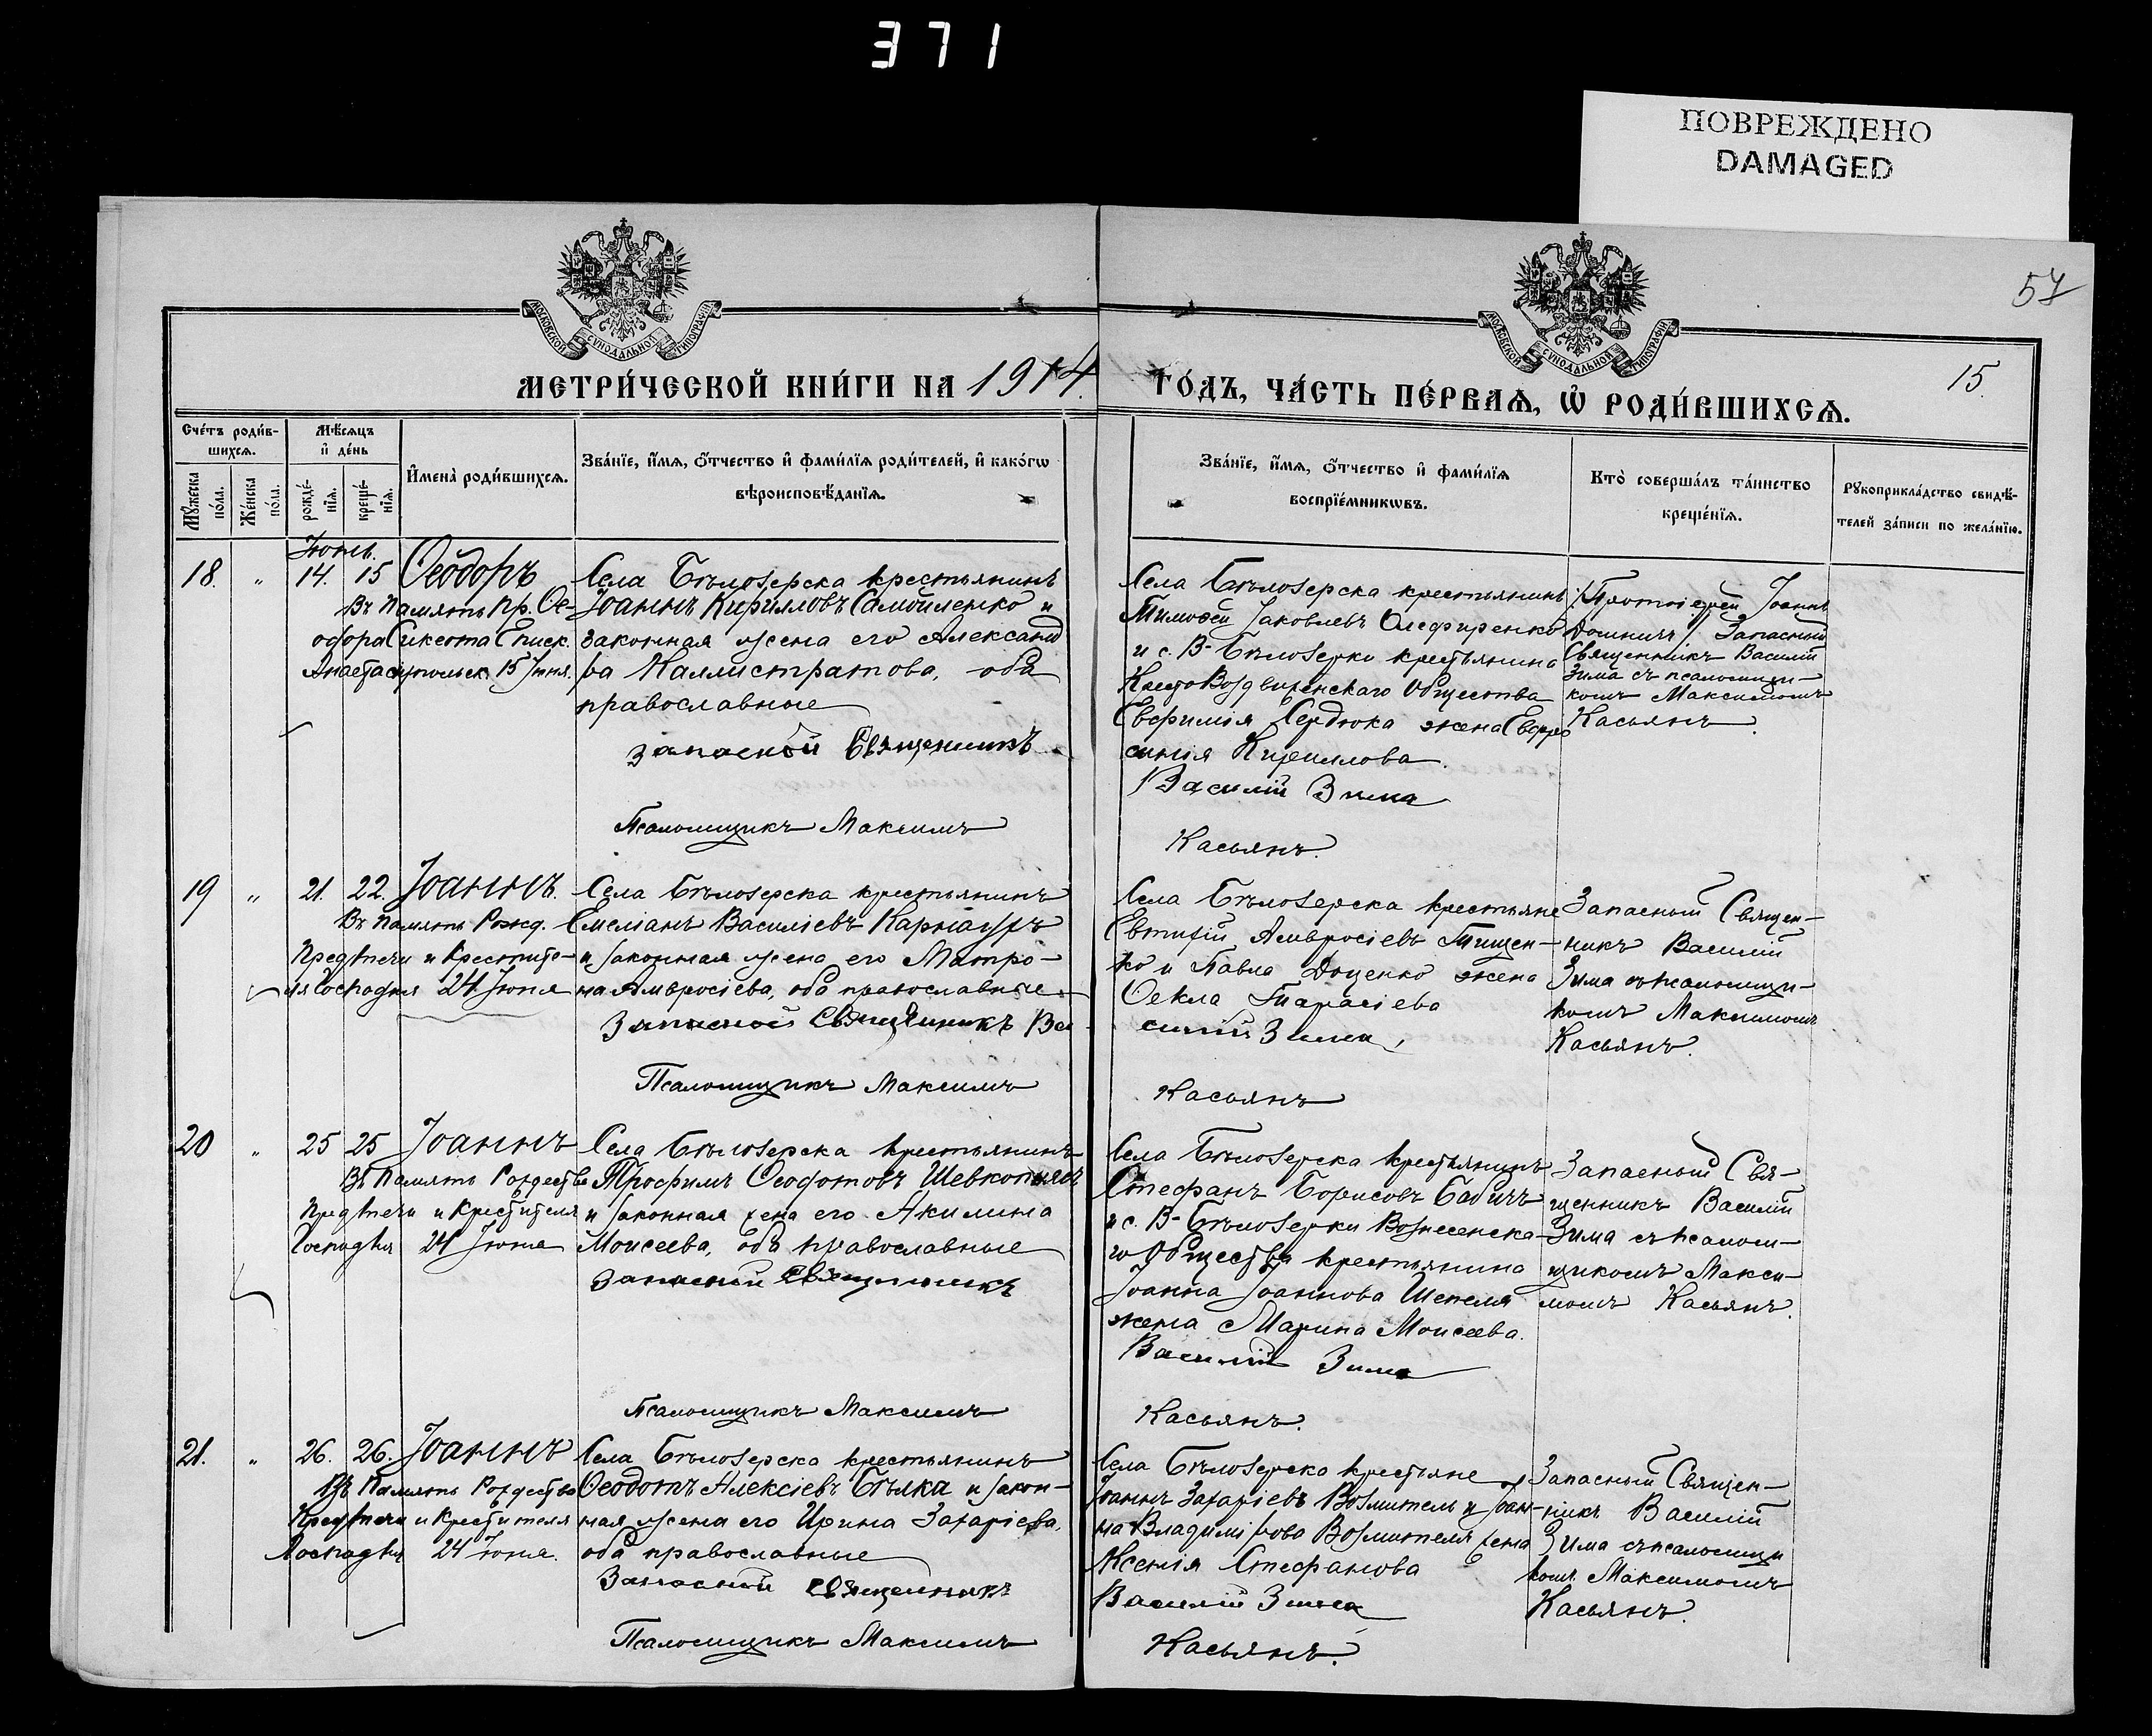 371
ПОВРЕЖДЕНО
DAMAGED
57
МОСКОВСКОЙ СѴНОДАЛЬНОЙ ТИПОГРАФІИ
МОСКОВСКОЙ СѴНОДАЛЬНОЙ ТИПОГРАФІИ
МЕТРИ́ЧЕСКОЙ КНИ́ГИ НА 1914.
ГО́ДЪ, ЧА́СТЬ ПЕ́РВАѦ, Ѽ РОДИ́ВШИХСѦ.
15.
Сче́тъ роди́в-
шихсѧ.
Мѣ́сѧцъ
и҆ де́нь
Мꙋ́жеска по́ла.
Же́нска по́ла.
рожде́-нїѧ.
креще́-нїѧ.
И҆мена̀ роди́вшихсѧ.
Зва́нїе, и҆́мѧ, ѻ҆́тчество и҆ фами́лїѧ роди́телей, и҆ како́гѡ
вѣроисповѣ́данїѧ.
Зва́нїе, и҆́мѧ, ѻ҆́тчество и҆ фами́лїѧ
воспрїе́мникѡвъ.
Кто̀ соверша́лъ та́инство
креще́нїѧ.
Рꙋкоприкла́дство свидѣ́-
телей за́писи по жела́нїю.
Іюнь.
18. " 14. 15 Ѳеодоръ
Въ память пр. Ѳе-
одора Сикеота Еписк.
Анастасіупольск. 15 Іюня.
Села Бѣлозерска крестьянинъ
Іоаннъ Кирилловъ Самойленко и
законная жена его Александ
ра Каллистратова, оба
православные
Запасной Священникъ
Псаломщикъ Максимъ
Села Бѣлозерска крестьянинъ
Тимоѳей Іаковлевъ Олефиренко
и с. В-Бѣлозерки крестьянина
КрестоВоздвиженскаго Общества
Евфимія Сердюка жена Евфро
синія Кириллова.
Василій Зима
Касьянъ.
/Протоіерей Іоаннъ
Домничъ/. Запасный
Священникъ Василій
Зима съ псаломщи-
комъ Максимомъ
Касьянъ.
19 " 21. 22. Іоаннъ.
Въ память Рожд.
Предтечи и Крестите-
ля Господня 24 Іюня
Села Бѣлозерска крестьянинъ
Емеліанъ Василіевъ Карнаухъ
и законная жена его Матро-
на Амвросіева, оба православные
Запасной Священникъ Ва
Псаломщикъ Максимъ
Села Бѣлозерска крестьяне
Евтихій Амвросіевъ Тищен-
ко и Павла Доценко жена
Ѳекла Тарасіева
силій Зима
Касьянъ
Запасный Священ-
никъ Василій
Зима съ псаломщи-
комъ Максимомъ
Касьянъ.
20 " 25 25 Іоаннъ
Въ память Рождества
Предтечи и Крестителя
Господня 24 Іюня
Села Бѣлозерска крестьянинъ
Трофимъ Ѳеодотовъ Шевкоплясъ
и законная жена его Акилина
Моисеева, оба православные
Запасной Священникъ
Псаломщикъ Максимъ
Села Бѣлозерска крестьянинъ
Стефанъ Борисовъ Бабичъ
и с. В-Бѣлозерки Вознесенска-
го Общества крестьянина
Іоанна Іоаннова Шепеля
жена Марина Моисеева.
Василій Зима
Касьянъ.
Запасный Свя-
щенникъ Василій
Зима съ псалом-
щикомъ Макси-
момъ Касьянъ.
21. " 26. 26. Іоаннъ
Въ память Рождества
Предтечи и Крестителя
Господня 24 Іюня.
Села Бѣлозерска крестьянинъ
Ѳеодотъ Алексіевъ Бѣлка и закон-
ная жена его Ирина Захаріева,
оба православные
Запасной Священникъ
Псаломщикъ Максимъ
Села Бѣлозерска крестьяне
Іоаннъ Захаріевъ Возмитель и Іоан-
на Владимірова Возмителя жена
Ксенія Стефанова
Василій Зима
Касьянъ.
Запасный Священ-
никъ Василій
Зима съ псаломщи
комъ Максимомъ
Касьянъ.